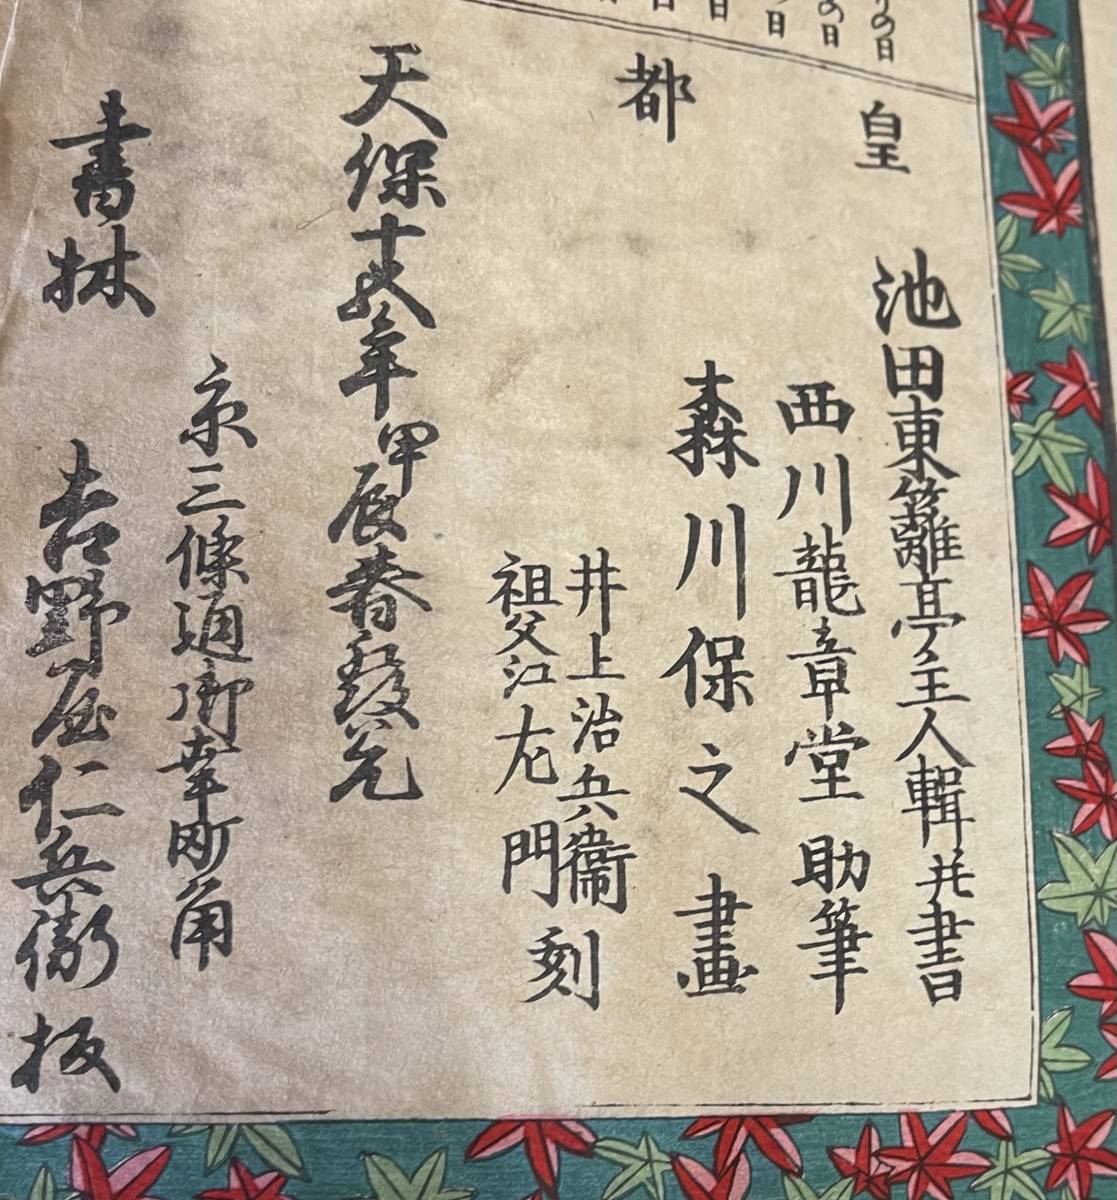 の日
の日
皇都
池田東籬亭主人輯并書
西川龍章堂助筆
森川保之畫
井上治兵衞
祖父江 門
刻
天保十五年甲辰春發兌
京三條通御幸町角
書林 吉野屋仁兵衛板